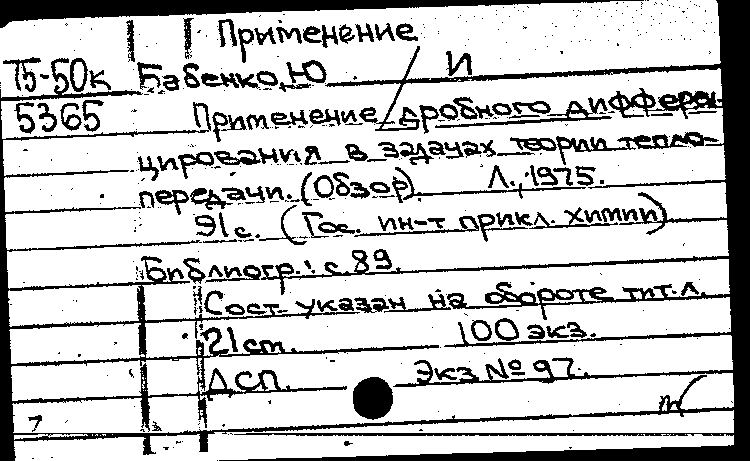 Применение
75-50к Бабенко, Ю И
5365 Применение / дробного дифферен-
цирования в задачах теории тепло-
передачи. (Обзор). Л., 1975.
91 с. (Гос. ин-т прикл. химии)
Библиогр.: с. 89.
Сост. указан на обороте тит. л.
21 ст. 100 экз.
ДСП. Экз № 97.